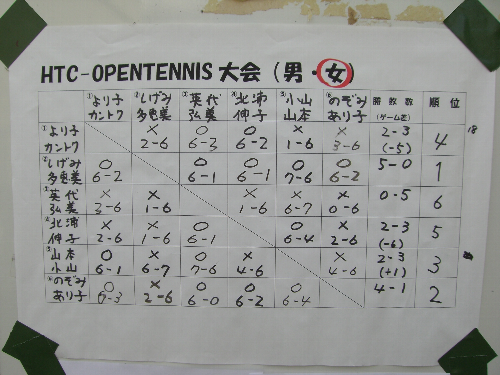 HTC-OPENTENNIS 大会 (男・女)
①より子 カントク ②しげみ 多恵美 ③英代 弘美 ④北浦 伸子 ⑤小山 山本 ⑥のぞみ あり子 勝敗数 (ゲーム差) 順位
①より子 カントク × 2-6 ○ 6-3 ○ 6-2 × 1-6 × 3-6 2-3 (-5) 4
18
②しげみ 多恵美 ○ 6-2 ○ 6-1 ○ 6-1 ○ 7-6 ○ 6-2 5-0 1
③英代 弘美 × 3-6 × 1-6 × 1-6 × 6-7 × 0-6 0-5 6
④北浦 伸子 × 2-6 × 1-6 ○ 6-1 ○ 6-4 × 2-6 2-3 (-6) 5
⑤山本 小山 ○ 6-1 × 6-7 ○ 7-6 × 4-6 × 4-6 2-3 (+1) 3
⑥のぞみ あり子 ○ 6-3 × 2-6 ○ 6-0 ○ 6-2 ○ 6-4 4-1 2